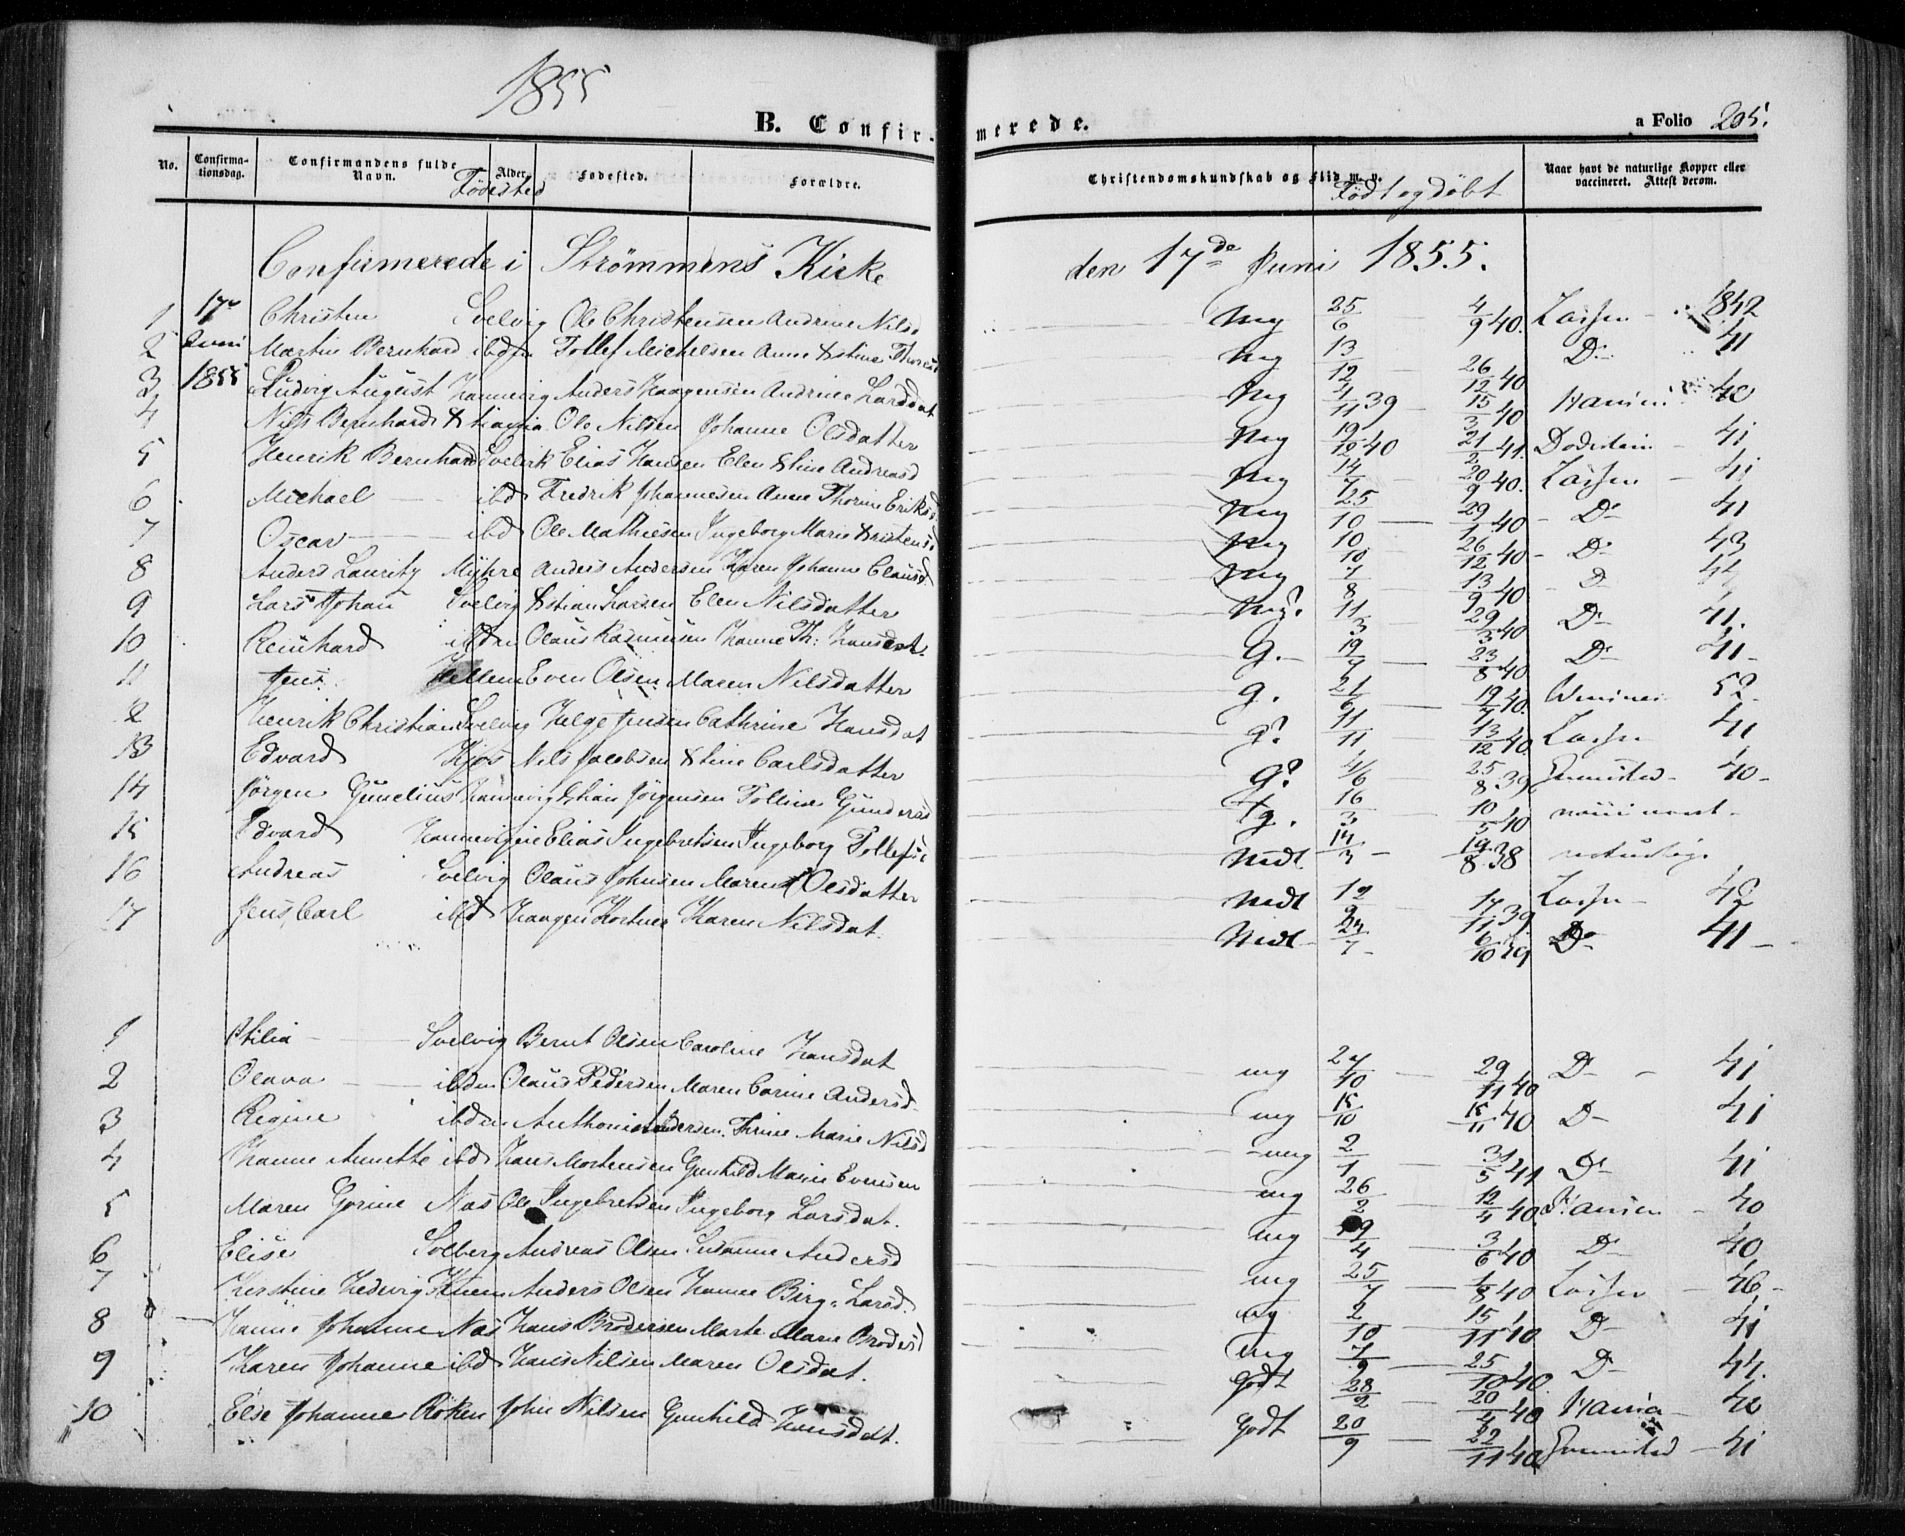 1855
B. Confir-merede. a Folio 205.
No. Confirmationsdag. Confirmandens fulde Navn. Alder Fødested. Forældre. Christendomskundskab og Flid m. v. Naar havt de naturlige Kopper eller vaccineret. Attest derom.
Fødested Født og døbt
Confirmerede i Strømmens Kirke den 17de Juni 1855.
1 17de Christen Svelvig Ole Christensen Andrine Nilsd mg 25/6 4/9 40. Lassen 1842
2 Juni Martin Bernhard ibdm Tollef Michelsen Anne Xstine Thoresd mg 13/12 26/12 40 Do 41
3 1855 Ludvig August Hannevig Anders Haagensen Andrine Larsdat mg 4/11 39 15/3 40 Hansen 40
4 Nils Bernhard Xtiania Ole Nilsen Johanne Olsdatter mg 19/12 40 21/2 41. 41
5 Henrik Bernhard Svelvik Elias Hansen Elen Stine Andreasd mg 14/7 20/9 40. Lassen 41
6 Michael ibd Fredrik Johannesen Anne Thorine Eriksd mg 25/10 29/1 40 Do 41
7 Oscar ibd Ole Mathiesen Ingeborg Marie Kristensd mg 10/10 26/12 40 Do 43
8 Anders Lauritz Myhre Anders Andersen Karen Johanne Clausd mg 7/8 13/9 40 D
9 Lars Johan Svelvig Xstian Larsen Elen Nilsdatter mg? 11/3 29/3 40 Do 41.
10 Reinhard ibdm Olaus Rasmusen Hanne Th: Hansdat. g. 19/7 23/8 40 Do 41
11 Jens Hellum Even Olsen Maren Nilsdatter g. 21/6 19/7 40. 52
12 Henrik Christian Svelvig Helge Jensen Cathrine Hansdat g? 11/11 13/12 40 Lassen 41
13 Edvard Kjøs Nils Jacobsen Xstine Carlsdatter g? 4/6 25/8 39 40
14 Jørgen Gunelius Hannevig Xstian Jørgensen Tolline Gundersd tg. 16/3 10/5 40
15 Edvard Hannevigen Elias Ingebretsen Ingeborg Tollefsd Mdl 14/3 19/8 38 naturlige
16 Andreas Svelvig Olaus Johnsen Maren Olsdatter Mdl 12/9 17/11 39. Lassen 42
17 Jens Carl ibd Haagen Kortner Karen Nilsdat. Mdl 24/7 6/10 39 Do 41
1 Otilia Svelvig Bernt Olsen Caroline Hansdat mg 27/10 29/11 40 D 41
2 Olava ibdm Olaus Pedersen Maren Corine Andersd mg 15/10 15/11 40 D 41
3 Regine ibdm Anthoni Andersen. Thrine Marie Nilsd mg 2/1 31/5 41 Do 41
4 Hanne Annette ibd Hans Mortensen Gunhild Marie Evensen mg 26/2 12/4 40. Hansen 40
5 Maren Gorine Nas Ole Ingebretsen Ingeborg Larsdat. mg 4 3/6 40 D 40
6 Elise Solberg Andreas Olsen Susanne Andersd mg 25/7 1/8 40 Lassen 46.
7 Kirstine Hedevig Anders Olsen Hanne Birg. Larsd. mg 2/10 15/11 40 D 41
8 Hanne Johanne Nas Hans Brodersen Marte Marie Brodersd mg 7/9 25/10 40 D 44.
9 Karen Johanne ibd Hans Nilsen Maren Olsdat. godt 28/2 20/4 40 Hansen 40
10 Else Johanne Røken John Nilsen Gunhild Hansdat. godt 20/9 22/11 40 41